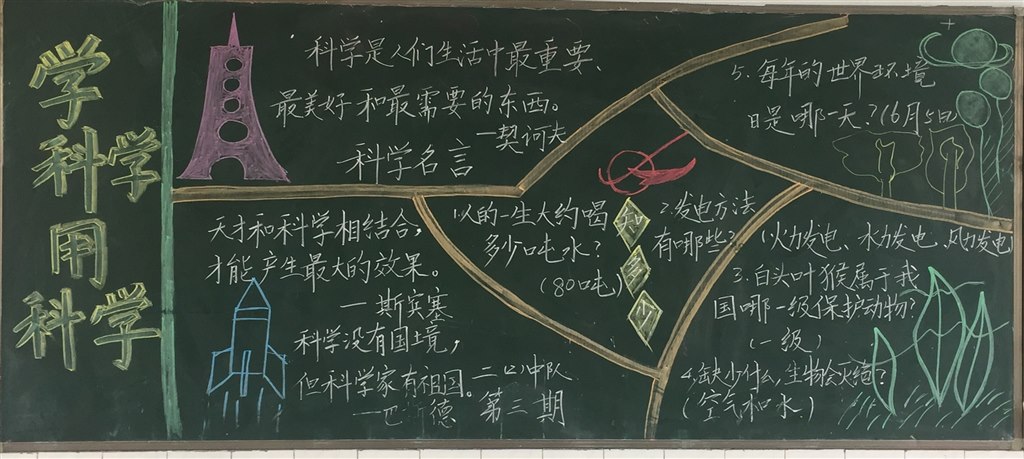 学
科学
用
科学
科学是人们生活中最重要、
最美好和最需要的东西。
—契诃夫
科学名言
天才和科学相结合，
才能产生最大的效果。
—斯宾塞
科学没有国境，
但科学家有祖国。
—巴 德
二(2)中队
第三期
知
多
少
1.人的一生大约喝
多少吨水？
(80吨)
2.发电方法
有哪些？
(火力发电、水力发电、风力发电)
3.白头叶猴属于我
国哪一级保护动物？
(一级)
4.缺少什么，生物会灭绝？
(空气和水)
5.每年的世界环境
日是哪一天？(6月5日)